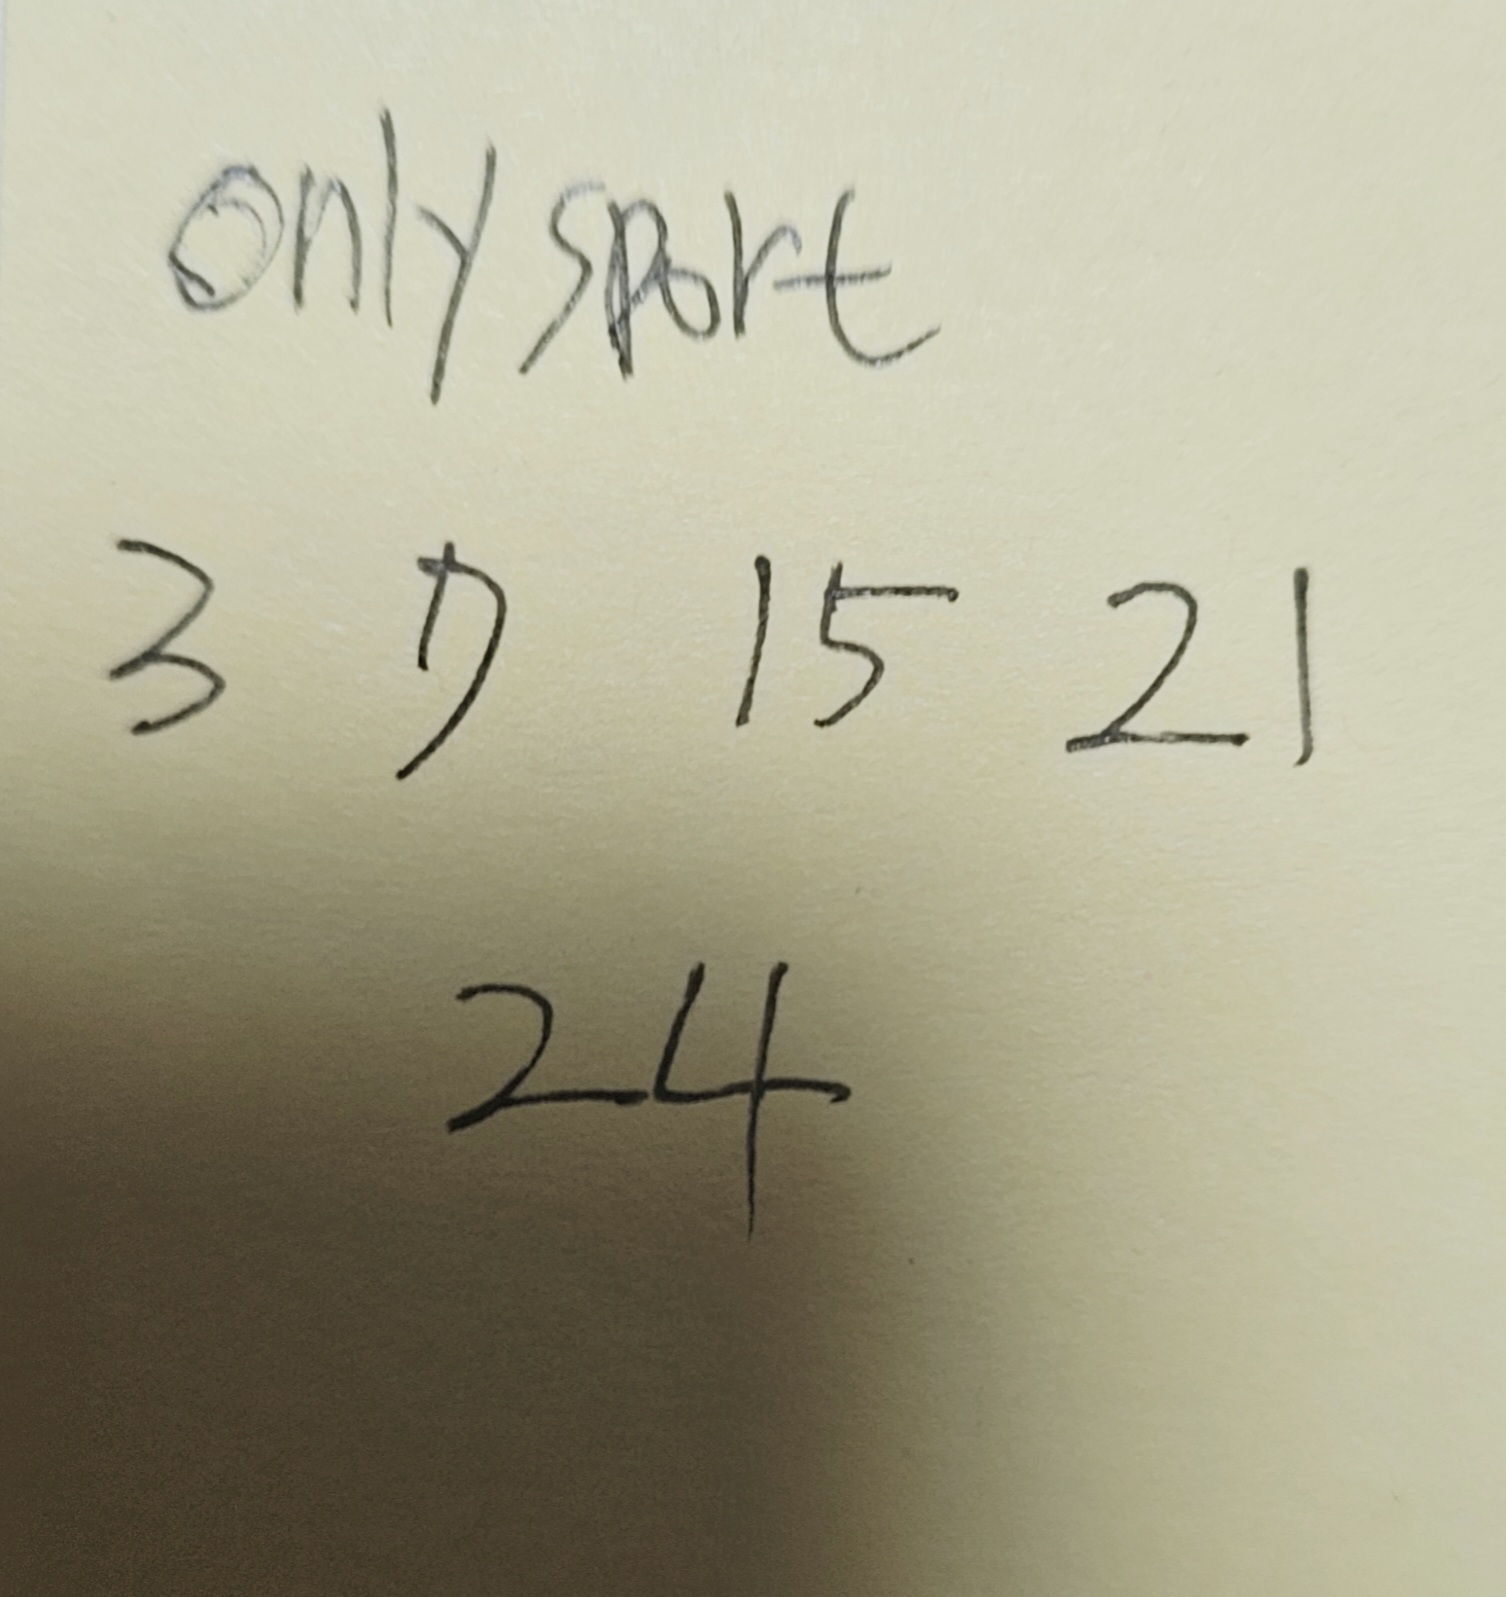 only sport
3 7 15 21
24